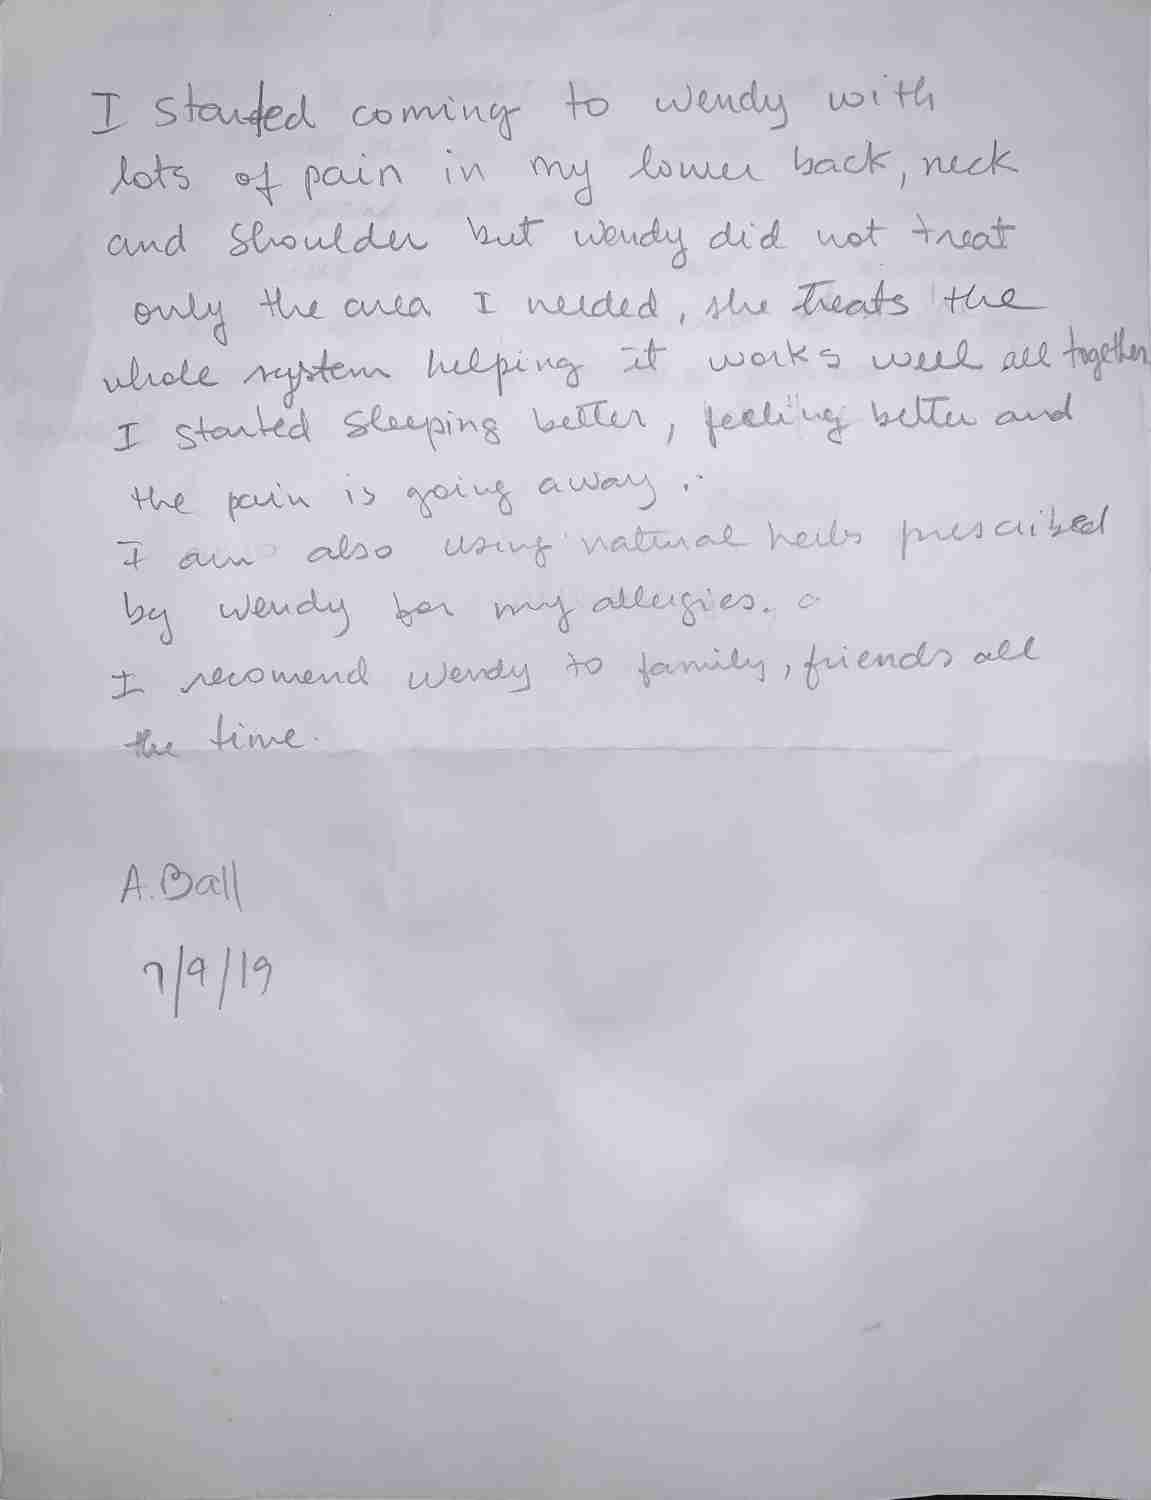 I started coming to wendy with
lots of pain in my lower back, neck
and shoulder but wendy did not treat
only the area I needed, she treats the
whole system helping it works well all together
I started sleeping better, feeling better and
the pain is going away..
I am also using natural herbs prescribed
by wendy for my allergies.
I recomend Wendy to family, friends all
the time.
A. Ball
7/9/19